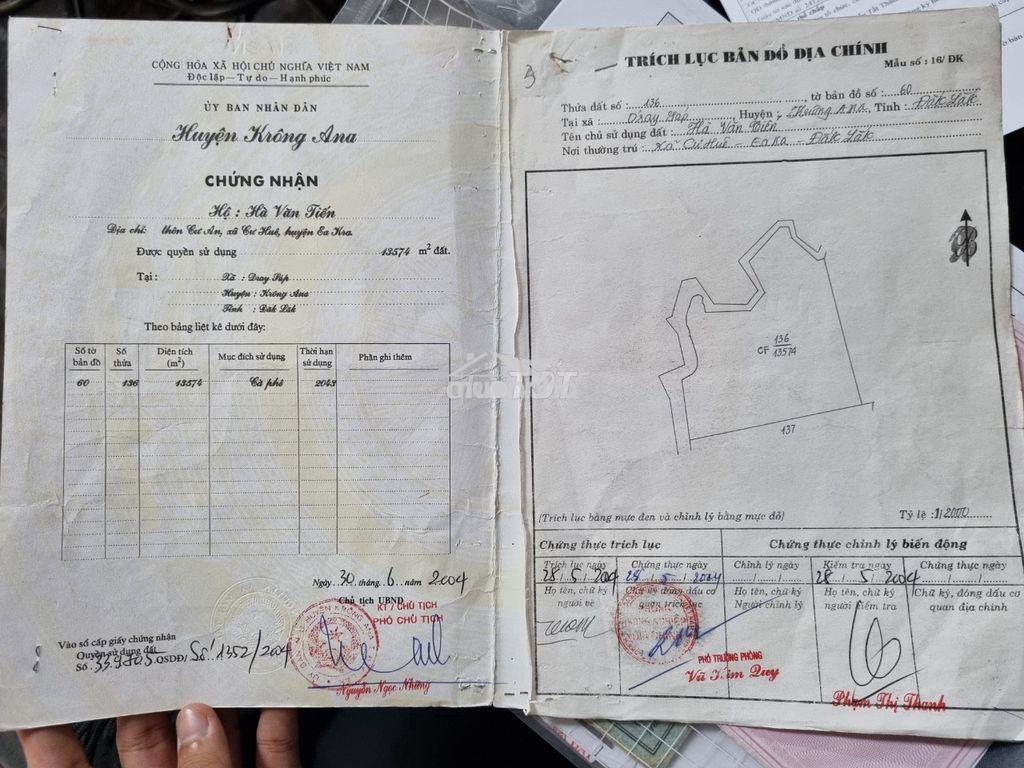 CỘNG HÒA XÃ HỘI CHỦ NGHĨA VIỆT NAM
Độc lập - Tự do - Hạnh phúc
ỦY BAN NHÂN DÂN
Huyện Krông Ana
CHỨNG NHẬN
Hộ : Hà Văn Tiến
Địa chỉ: thôn Cư An, xã Cư Huê, huyện Ea Kra.
Được quyền sử dụng 13574 m² đất.
Tại : Xã : Dray Sáp
Huyện : Krông Ana
Tỉnh : Đăk Lăk
Theo bảng liệt kê dưới đây:
Số tờ bản đồ Số thửa Diện tích (m²) Mục đích sử dụng Thời hạn sử dụng Phần ghi thêm
60 136 13574 Cà phê 2043
Ngày 30 tháng 6 năm 2004
Chủ tịch UBND
KT/ CHỦ TỊCH
PHÓ CHỦ TỊCH
Vào sổ cấp giấy chứng nhận
Quyền sử dụng đất
Số QSDĐ/ Số 1352/2004
Nguyễn Ngọc Nhưng
3
TRÍCH LỤC BẢN ĐỒ ĐỊA CHÍNH
Mẫu số : 16/ĐK
Thửa đất số : 136 tờ bản đồ số : 60
Tại xã : Dray Sáp Huyện : Krông Ana, Tỉnh : Đăk Lăk
Tên chủ sử dụng đất : Hà Văn Tiến
Nơi thường trú : Xã Cư Huê - Ea Ka - Đăk Lăk
CF 136
13574
137
(Trích lục bằng mực đen và chỉnh lý bằng mực đỏ)
Tỷ lệ : 1/2000
Chứng thực trích lục Chứng thực chỉnh lý biến động
Trích lục ngày Chứng thực ngày Chỉnh lý ngày Kiểm tra ngày Chứng thực ngày
28/5/2004 28/5/2004 28/5/2004
Họ tên, chữ ký người vẽ
Chữ ký đóng dấu cơ quan trích lục
Họ tên, chữ ký Người chỉnh lý
Họ tên, chữ ký người kiểm tra
Chữ ký, đóng dấu cơ quan địa chính
PHÓ TRƯỞNG PHÒNG
Vũ Kim Quy
Phạm Thị Thanh